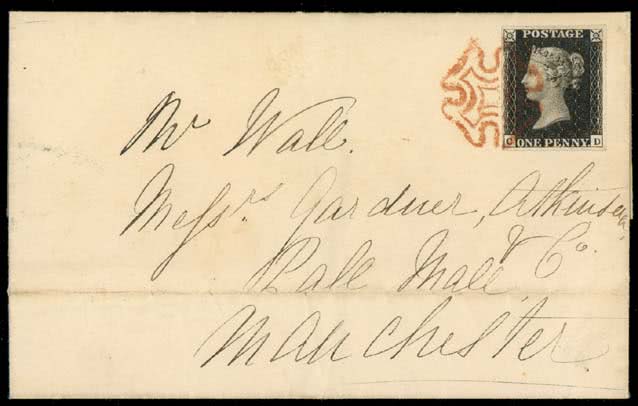 POSTAGE
C ONE PENNY D
Mr Wall.
Messrs. Gardner, Atkinson,
& Co.
Pall Mall,
Manchester